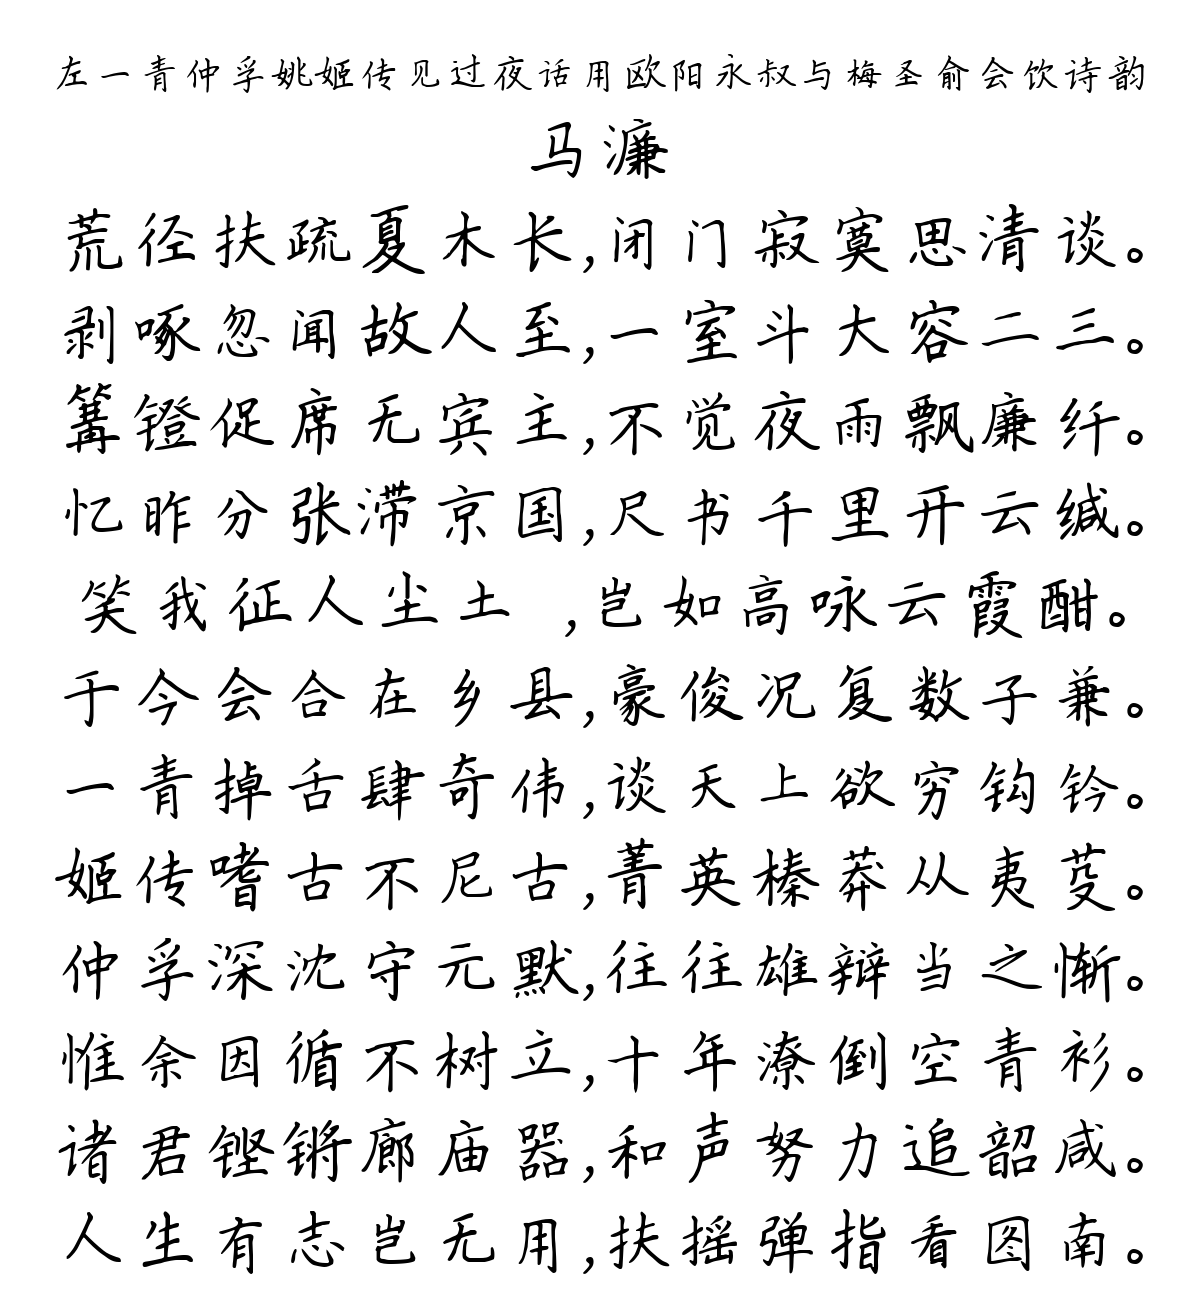 左一青仲孚姚姬传见过夜话用欧阳永叔与梅圣俞会饮诗韵
马濂
荒径扶疏夏木长,闭门寂寞思清谈。
剥啄忽闻故人至,一室斗大容二三。
篝镫促席无宾主,不觉夜雨飘廉纤。
忆昨分张滞京国,尺书千里开云缄。
笑我征人尘土 ,岂如高咏云霞酣。
于今会合在乡县,豪俊况复数子兼。
一青掉舌肆奇伟,谈天上欲穷钩钤。
姬传嗜古不尼古,菁英榛莽从夷芟。
仲孚深沈守元默,往往雄辩当之惭。
惟余因循不树立,十年潦倒空青衫。
诸君铿锵廊庙器,和声努力追韶咸。
人生有志岂无用,扶摇弹指看图南。